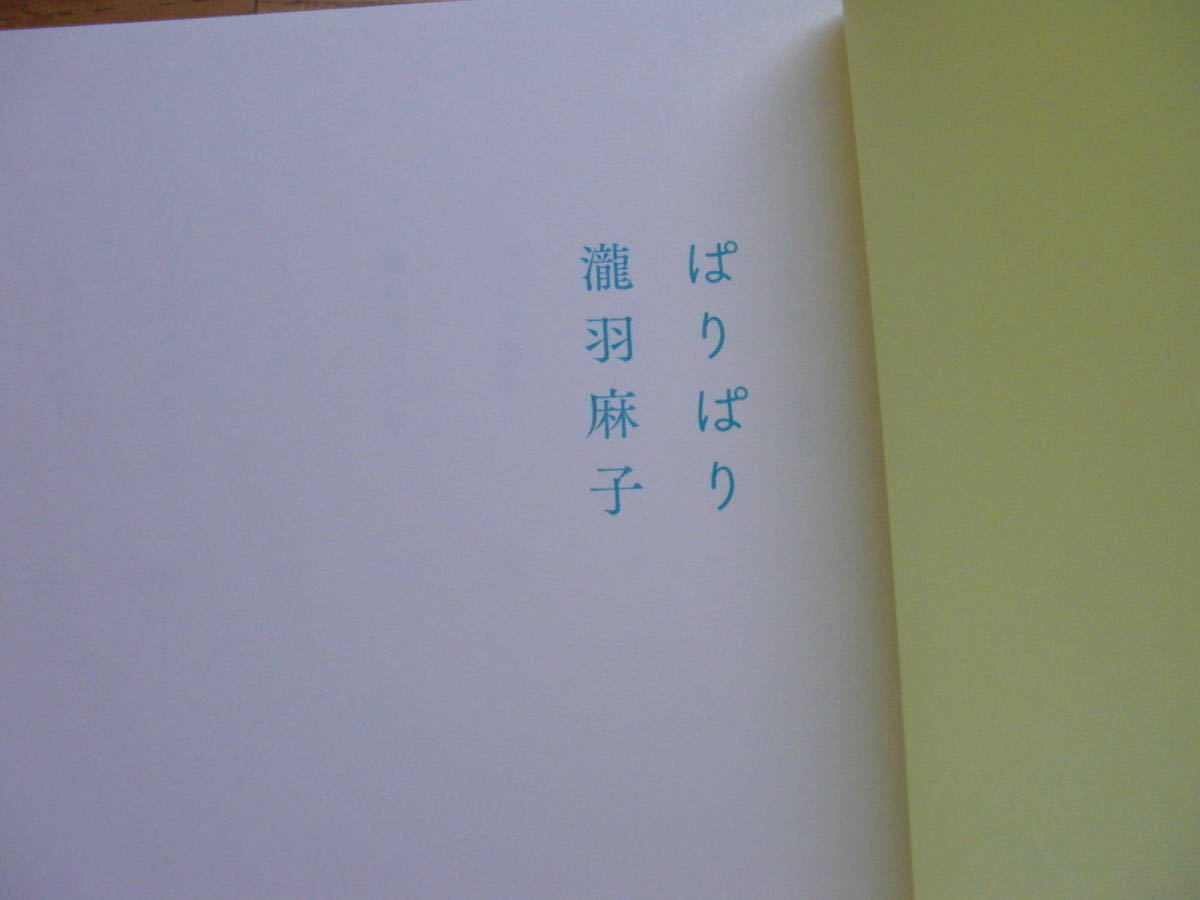 ぱりぱり
瀧羽麻子